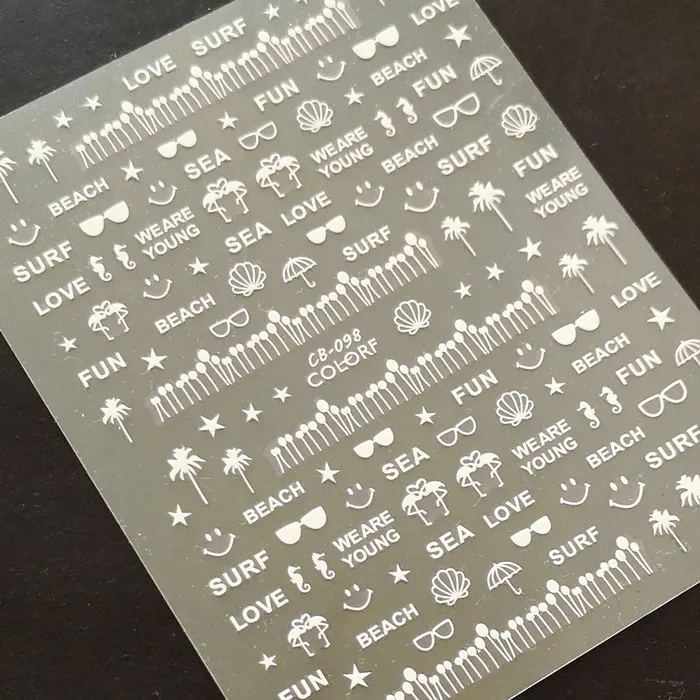 LOVE SURF
LOVE
FUN BEACH
BEACH SEA WEARE FUN
YOUNG
SURF WEARE SEA LOVE BEACH SURF FUN
YOUNG
LOVE BEACH SURF WEARE
YOUNG
FUN
CB-098
COLORF
LOVE
BEACH SEA FUN BEACH
WEARE FUN
YOUNG
SURF WEARE SEA LOVE BEACH SURF
YOUNG
LOVE BEACH SURF
FUN